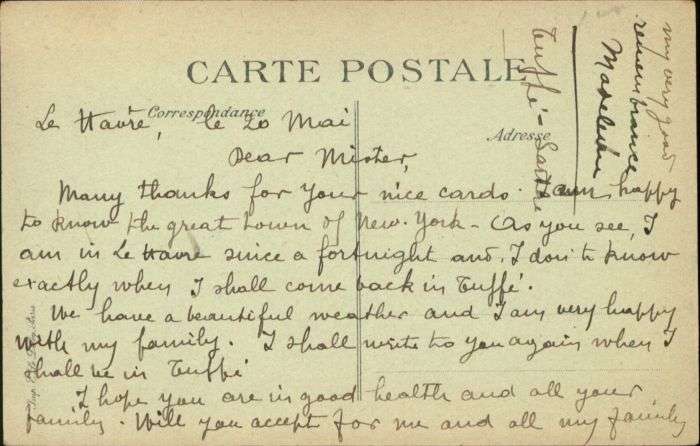 CARTE POSTALE
Correspondance
Adresse
Le Havre, le 20 Mai
Dear Mister,
Many thanks for your nice cards. I am happy
to know the great town of New-York - As you see, I
am in Le Havre since a fortnight and, I don't know
exactly when I shall come back in Tuffé.
We have a beautiful weather and I am very happy
with my family. I shall write to you again when I
shall be in Tuffé
I hope you are in good health and all your
family. Will you accept for me and all my family
my very good
remembrance
Madeleine
Tuffé - Sarthe